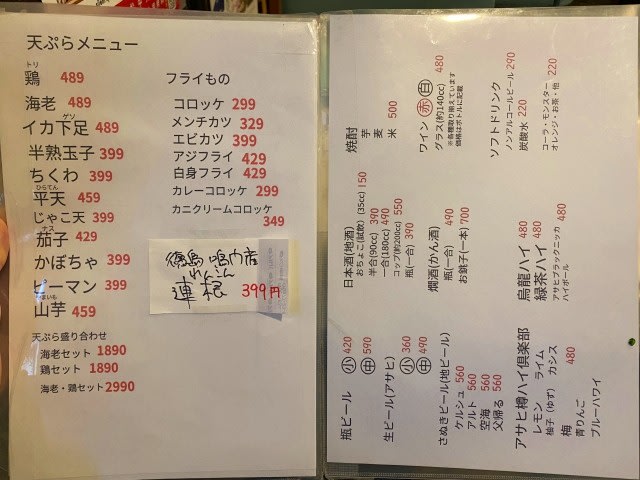 天ぷらメニュー
トリ
鶏 489
海老 489
ゲソ
イカ下足 489
半熟玉子 399
ちくわ 399
ひらてん
平天 459
じゃこ天 399
ナス
茄子 429
かぼちゃ 399
ピーマン 399
山芋 459
天ぷら盛り合わせ
海老セット 1890
鶏セット 1890
海老・鶏セット 2990
フライもの
コロッケ 299
メンチカツ 329
エビカツ 399
アジフライ 429
白身フライ 429
カレーコロッケ 299
カニクリームコロッケ
349
徳島 鳴門産
れんこん
連根 399円
瓶ビール 小 420
中 590
生ビール(アサヒ) 小 360
中 490
さぬきビール(地ビール)
ケルシュ 560
アルト 560
空海 560
父帰る 560
アサヒ樽ハイ倶楽部
レモン ライム
柚子(ゆず) カシス
梅 480
青りんご
ブルーハワイ
日本酒(地酒)
おちょこ(試飲)(35cc) 150
半合(90cc) 390
一合(180cc) 490
コップ(約200cc) 550
瓶(一合) 390
燗酒(かん酒)
瓶(一合) 490
お銚子(一本) 700
烏龍ハイ 480
緑茶ハイ 480
アサヒブラックニッカ 480
ハイボール
焼酎
芋
麦
米 500
ワイン 赤 白
グラス(約140cc) 480
※各種取り揃えています
価格はボトルに記載
ソフトドリンク
ノンアルコールビール 290
炭酸水 220
コーラ・モンスター 220
オレンジ・お茶・他